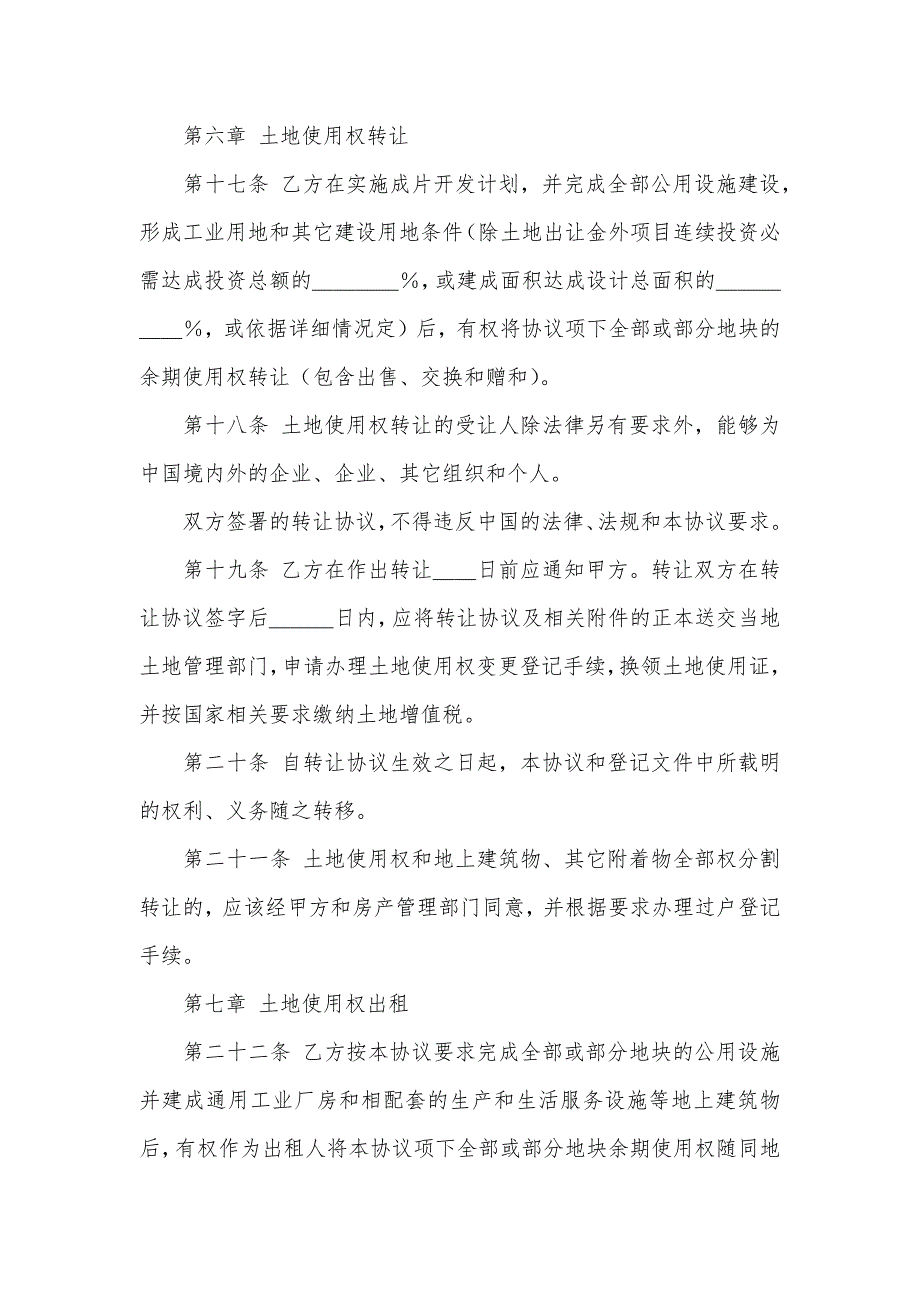 第六章 土地使用权转让
第十七条 乙方在实施成片开发计划，并完成全部公用设施建设，
形成工业用地和其它建设用地条件（除土地出让金外项目连续投资必
需达成投资总额的________％，或建成面积达成设计总面积的______
____％，或依据详细情况定）后，有权将协议项下全部或部分地块的
余期使用权转让（包含出售、交换和赠和）。
第十八条 土地使用权转让的受让人除法律另有要求外，能够为
中国境内外的企业、企业、其它组织和个人。
双方签署的转让协议，不得违反中国的法律、法规和本协议要求。
第十九条 乙方在作出转让____日前应通知甲方。转让双方在转
让协议签字后______日内，应将转让协议及相关附件的正本送交当地
土地管理部门，申请办理土地使用权变更登记手续，换领土地使用证，
并按国家相关要求缴纳土地增值税。
第二十条 自转让协议生效之日起，本协议和登记文件中所载明
的权利、义务随之转移。
第二十一条 土地使用权和地上建筑物、其它附着物全部权分割
转让的，应该经甲方和房产管理部门同意，并根据要求办理过户登记
手续。
第七章 土地使用权出租
第二十二条 乙方按本协议要求完成全部或部分地块的公用设施
并建成通用工业厂房和相配套的生产和生活服务设施等地上建筑物
后，有权作为出租人将本协议项下全部或部分地块余期使用权随同地